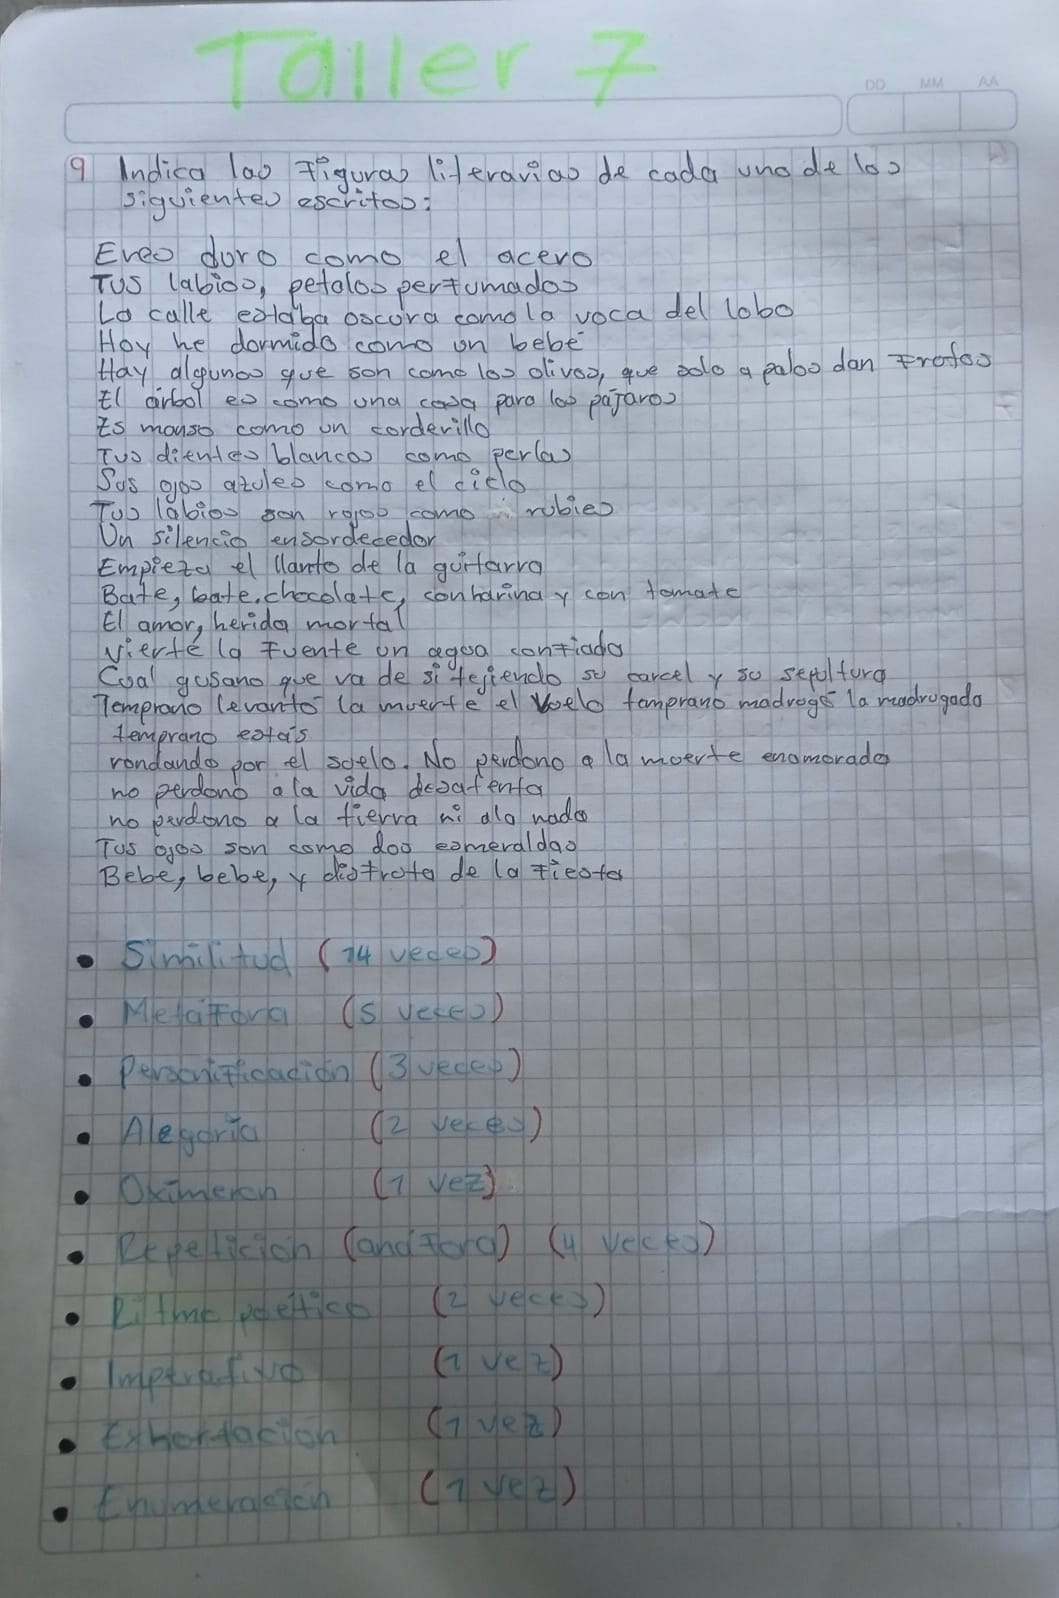 Taller 7
DD MM AA
9 Indica las Figuras literarias de cada uno de los
siguientes escritos:
Eres duro como el acero
Tus labios, petalos perfumados
La calle estaba oscura como la voca del lobo
Hoy he dormido como un bebé
Hay algunos que son como los olivos, que solo a palos dan frotos
El árbol es como una casa para los pájaros
Es manso como un corderillo
Tus dientes blancos como perlas
Sus ojos azules como el cielo
Tus labios son rojos como rubies
Un silencio ensordecedor
Empieza el llanto de la guitarra
Bate, bate, chocolate, con harina y con tomate
El amor, herida mortal
Vierte la Fuente un agua confiada
Cual gusano que va de si tejiendo su carcel y su sepultura
Temprano levantó la muerte el vuelo temprano madrugó la madrugada
temprano estás
rondando por el suelo. No perdono a la muerte enamorada
no perdono a la vida desatenta
no perdono a la tierra ni ala nada
Tus ojos son como dos esmeraldas
Bebe, bebe, y disfruta de la Fiesta
• Similitud (14 veces)
• Metáfora (5 veces)
• Personificación (3 veces)
• Alegoría (2 veces)
• Oximeron (1 vez)
• Repetición (anáfora) (4 veces)
• Ritmo poético (2 veces)
• Imperativo (1 vez)
• Exhortación (1 vez)
• Enumeración (1 vez)